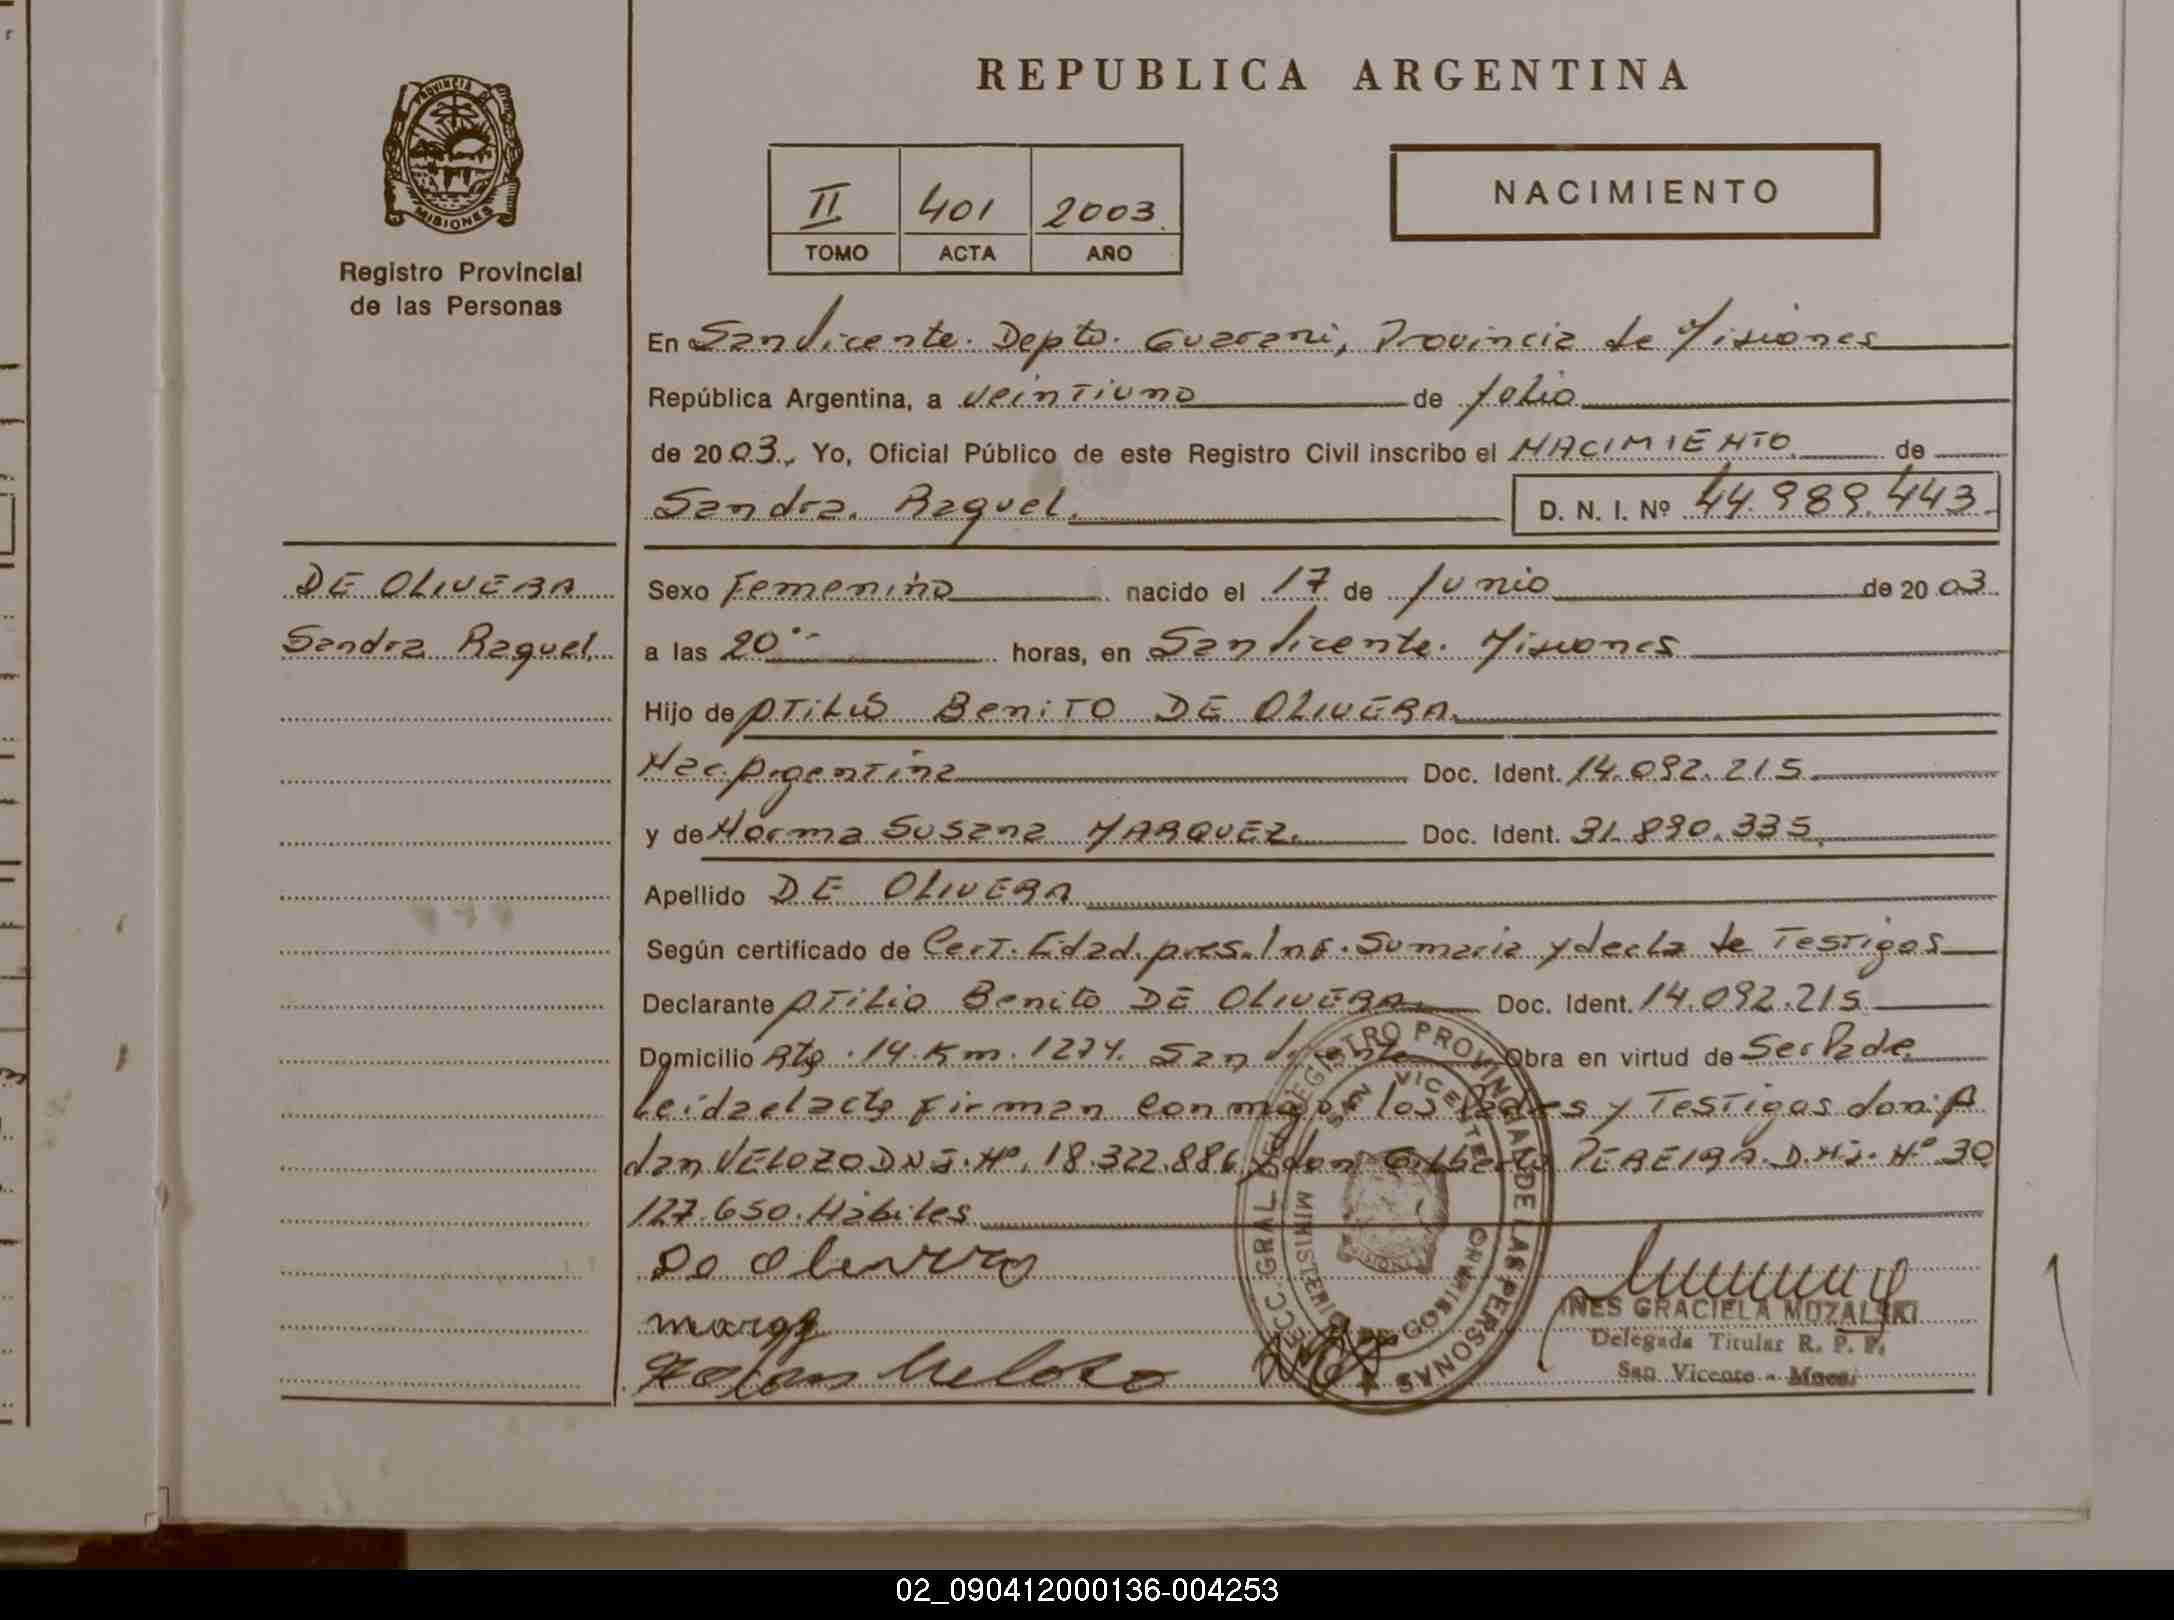 REPUBLICA ARGENTINA
PROVINCIA DE
MISIONES
Registro Provincial
de las Personas
II 401 2003.
TOMO ACTA AÑO
NACIMIENTO
En San Vicente. Depto. Guarani, Provincia de Misiones
República Argentina, a veintiuno de Julio
de 2003., Yo, Oficial Público de este Registro Civil inscribo el NACIMIENTO de
Sandra Raquel. D. N. I. Nº 44.989.443.
DE OLIVERA
Sandra Raquel
Sexo Femenino nacido el 17 de Junio de 2003.
a las 20 horas, en San Vicente. Misiones
Hijo de Atilio Benito DE OLIVERA.
Nac. Argentina Doc. Ident. 14.092.215
y de Norma Susana MARQUEZ. Doc. Ident. 31.890.335
Apellido DE OLIVERA
Según certificado de Cert. Edad. pres. Inf. Sumaria y decla de Testigos
Declarante Atilio Benito DE OLIVERA. Doc. Ident. 14.092.215
Domicilio Rta. 14. Km. 1274. San Vicente Obra en virtud de Ser Padre
Leida el acta firman conmigo los Padres y Testigos don: A
dan VELOZO DNI. Nº. 18.322.886 y don Gilberto PEREIRA. D.N.I. Nº 30
127.650. Hábiles
De Olivera
marq
Adan Velozo
DIRECC. GRAL DEL REGISTRO PROVINCIAL DE LAS PERSONAS
SAN VICENTE
MINISTERIO DE GOBIERNO
MISIONES
INES GRACIELA MOZALSKI
Delegada Titular R. P. P.
San Vicente - Mnes.
02_090412000136-004253